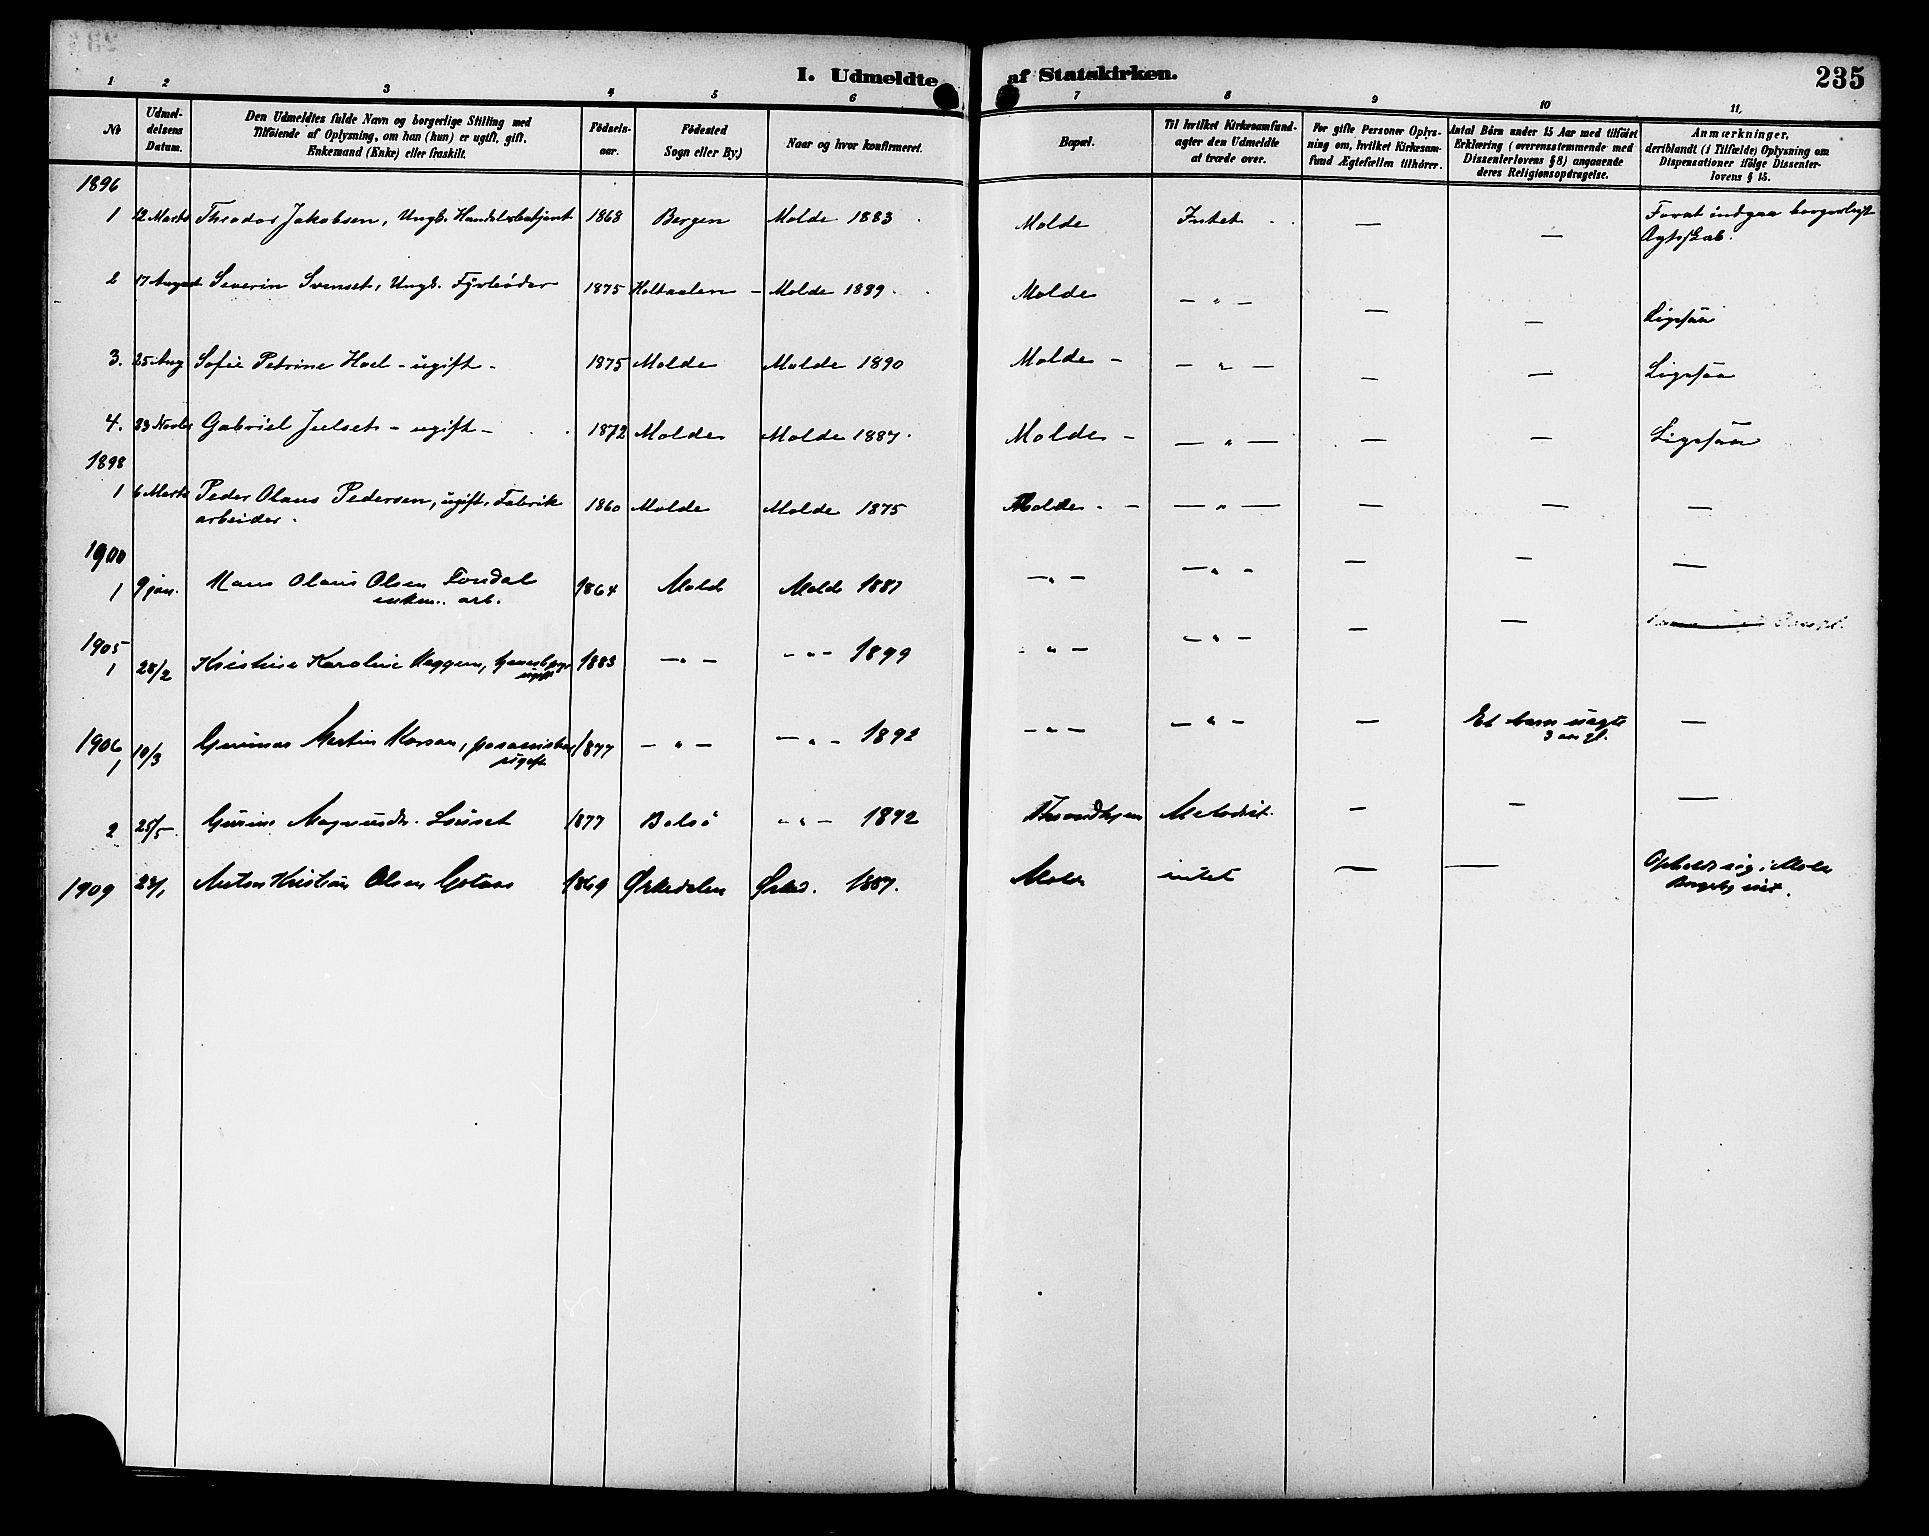 I. Udmeldte af Statskirken.
235
1 2 3 4 5 6 7 8 9 10 11,
No
Udmel-
delsens
Datum.
Den Udmeldtes fulde Navn og borgerlige Stilling med
Tilføiende af Oplysning, om han (hun) er ugift, gift,
Enkemand (Enke) eller fraskilt.
Fødsels-
aar.
Fødested
Sogn eller By.)
Naar og hvor konfirmeret.
Bopæl.
Til hvilket Kirkesamfund-
agter den Udmeldte
at træde over.
For gifte Personer Oplys-
ning om, hvilket Kirkesam-
fund Ægtefællen tilhører.
Antal Børn under 15 Aar med tilføiet
Erklæring (overensstemmende med
Dissenterlovens § 8) angaaende
deres Religionsopdragelse.
Anmærkninger,
deriblandt (i Tilfælde) Oplysning om
Dispensationer ifølge Dissenter-
lovens § 15.
1896
1 12 Marts Theodor Jakobsen, Ungk. Handelsbetjent 1868 Bergen Molde 1883 Molde Intet — — For at indgaa borgerligt
Ægteskab.
2 17 August Severin Svenset, Ungk. Fyrbøder 1875 Holtaalen – Molde 1889. Molde — " — — — Ligesaa
3. 25 Aug Sofie Petrine Hoel – ugift – 1875 Molde Molde 1890 Molde – — " — — — Ligesaa
4. 23 Novbr Gabriel Julset – ugift – 1872 Molde Molde 1887. Molde – — " — — — Ligesaa
1898
1 6 Marts Peder Olaus Pedersen, ugift, Fabrik
arbeider. 1860 Molde Molde 1875 Molde – — " — — — —
1900
1 9 jan. Hans Olaus Olsen Fondal
enkem. arb. 1864 Molde Molde 1881 — " — — " — — — —
1905
1 28/2 Kristine Karoline Haggen,
ugift 1883 — " — — " — 1899 " — — " — — —
1906
1 10/3 Gunnar Martin
ugift 1877 — " — — " — 1892 — " — — " — — Et barn uægte
3 aar gl. —
2 25/5 Gurine Magnusdr. 1877 Bolsø — " — 1892 Trondhjem Metodist. — — —
1909 23/1 Anton Kristian Olsen 1869 Ørkedalen Ørked. 1887. Molde intet — — Opholdt sig i Molde